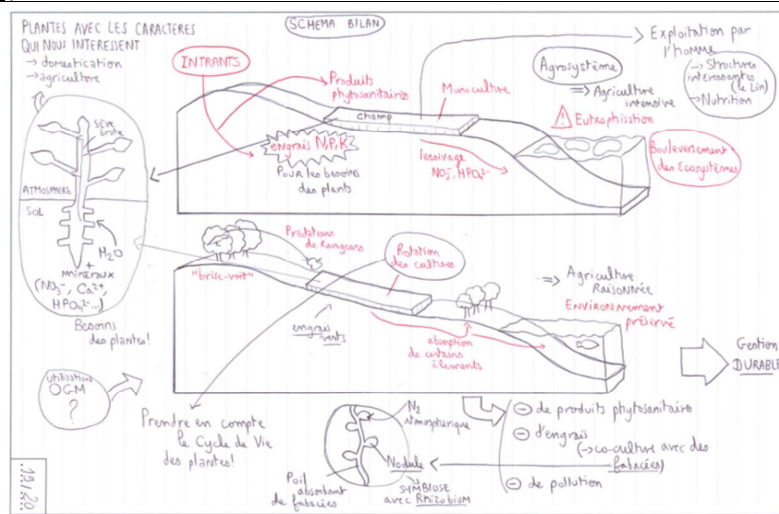 PLANTES AVEC LES CARACTÈRES
QUI NOUS INTERESSENT
→ domestication
→ agriculture
SCHEMA BILAN
INTRANTS
Produits
phytosanitaires
Monoculture
champ
engrais N,P,K
Pour les besoins
des plants
lessivage
NO3-, HPO4 2-
Exploitation par
l'homme
→ Structures
interessantes
(le Lin)
→ Nutrition
Agrosystème
⇒ Agriculture
intensive
⚠ Eutrophisation
Bouleversement
des écosystèmes
Sève
brute
ATMOSPHERE
SOL
H2O
+
minéraux
(NO3-, Ca2+,
HPO4 2-...)
Besoins
des plantes!
Utilisation
OGM
?
"brise-vent"
Prédateurs
de Rongeurs
Rotation
des cultures
engrais
verts
absorption
de certains
éléments
⇒ Agriculture
RAISONNÉE
ENVIRONNEMENT
préservé
Gestion
DURABLE
Prendre en compte
le Cycle de Vie
des plantes!
N2
atmosphérique
Nodule
Poil
absorbant
de fabacées
SYMBIOSE
avec Rhizobium
⊖ de produits phytosanitaire
⊖ d'engrais
(→ co-culture avec des
fabacées)
⊖ de pollution
19/20